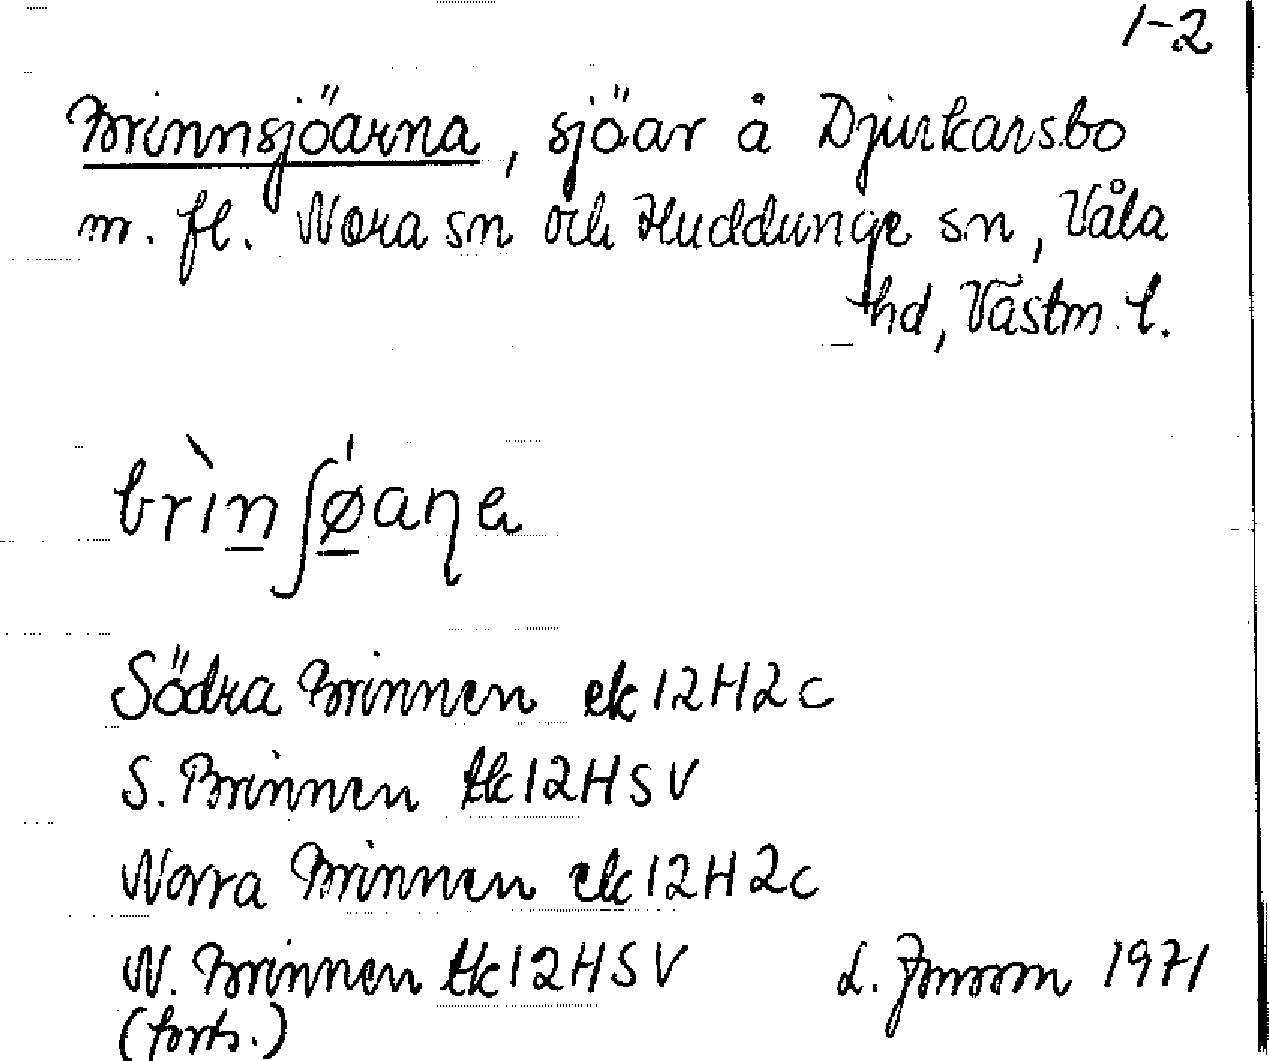 1-2
Brinnsjöarna, sjöar å Djurkarsbo
m. fl. Nora sn och Huddunge sn, Våla
hd, Västm. l.
brìnʃǿaɳa
Södra Brinnen ek 12H2c
S. Brinnen tk 12HSV
Norra Brinnen ek 12H2c
N. Brinnen tk 12HSV L. Jonsson 1971
(forts.)